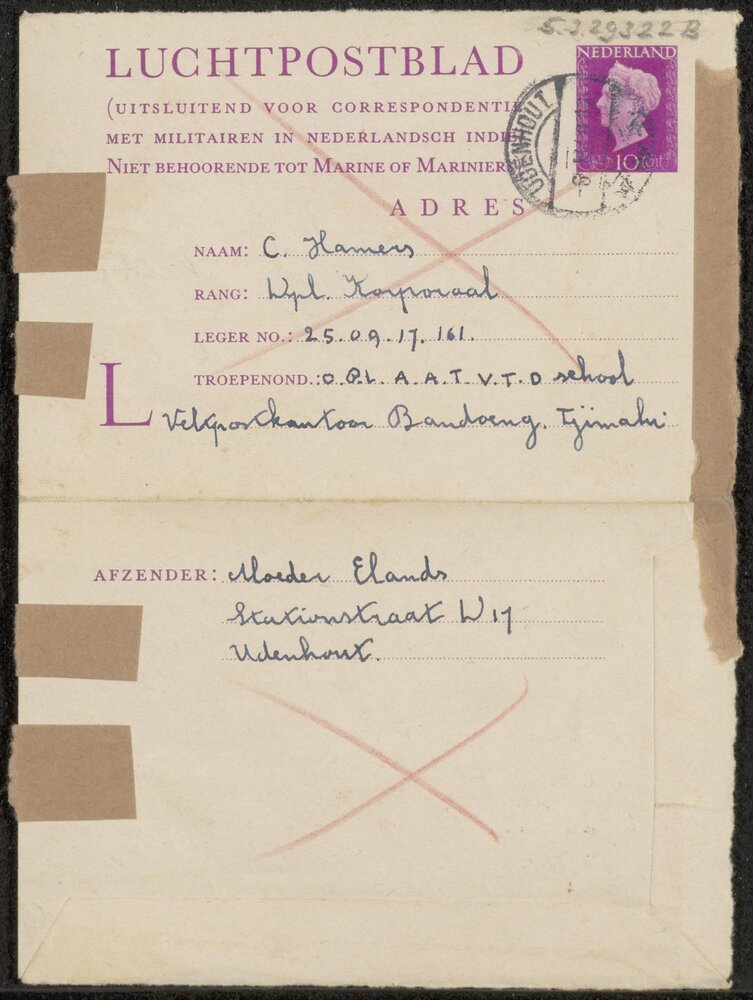 5.3.29322 B
LUCHTPOSTBLAD
NEDERLAND
(UITSLUITEND VOOR CORRESPONDENTIE
MET MILITAIREN IN NEDERLANDSCH INDIË
NIET BEHOORENDE TOT MARINE OF MARINIERS
10 cent
UDENHOUT
ADRES
NAAM: C. Hamers
RANG: Wpl. Korporaal
LEGER NO.: 25.09.17.161.
TROEPENOND.: O.P.L. A.A.T. V.T.O school
L Veldpostkantoor Bandoeng. Tjimahi
AFZENDER: Moeder Elands
Stationstraat W 17
Udenhout.